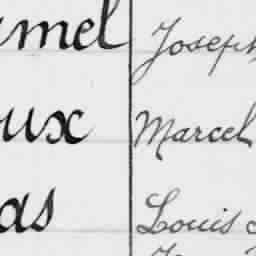 amel Joseph
oux Marcel
as Louis